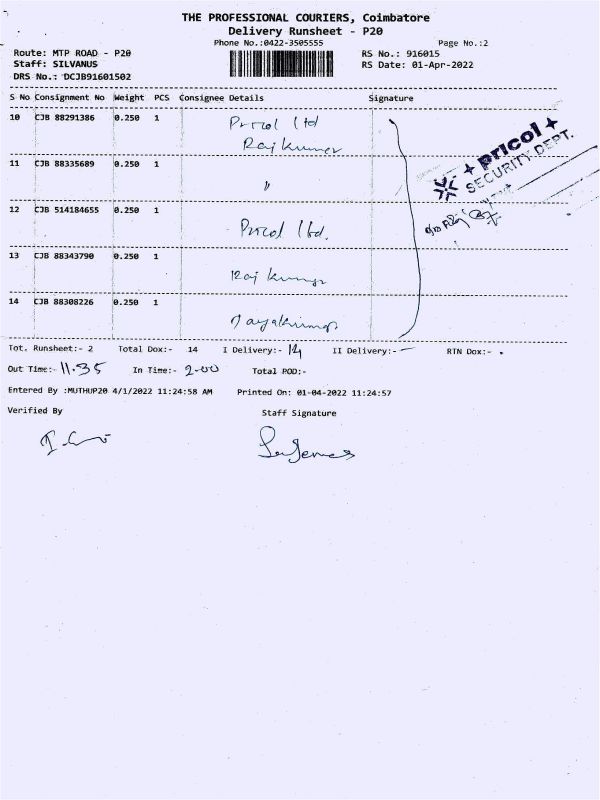 THE PROFESSIONAL COURIERS, Coimbatore
Delivery Runsheet - P20
Phone No.:0422-3505555
Page No.:2
Route: MTP ROAD - P20
RS No.: 916015
Staff: SILVANUS
RS Date: 01-Apr-2022
DRS No.: DCJB91601502
S No Consignment No Weight PCS Consignee Details Signature
10 CJB 88291386 0.250 1 Pricol ltd
Raj kumar
11 CJB 88335689 0.250 1 〃
12 CJB 514184655 0.250 1 Pricol ltd.
13 CJB 88343790 0.250 1 Raj kumar
14 CJB 88308226 0.250 1 Jayakumar
pricol
SECURITY DEPT.
Tot. Runsheet:- 2 Total Dox:- 14 I Delivery:- 14 II Delivery:- — RTN Dox:- .
Out Time:- 11.35 In Time:- 2.00 Total POD:-
Entered By :MUTHUP20 4/1/2022 11:24:58 AM Printed On: 01-04-2022 11:24:57
Verified By Staff Signature